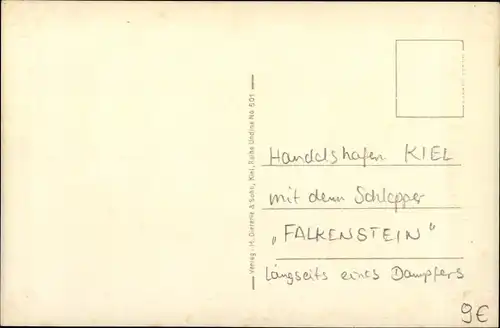 Handelshafen KIEL
mit dem Schlepper
"FALKENSTEIN"
Längseits eines Dampfers
9€
Verlag: H. & Sohn, Kiel, Reihe Undine No 501